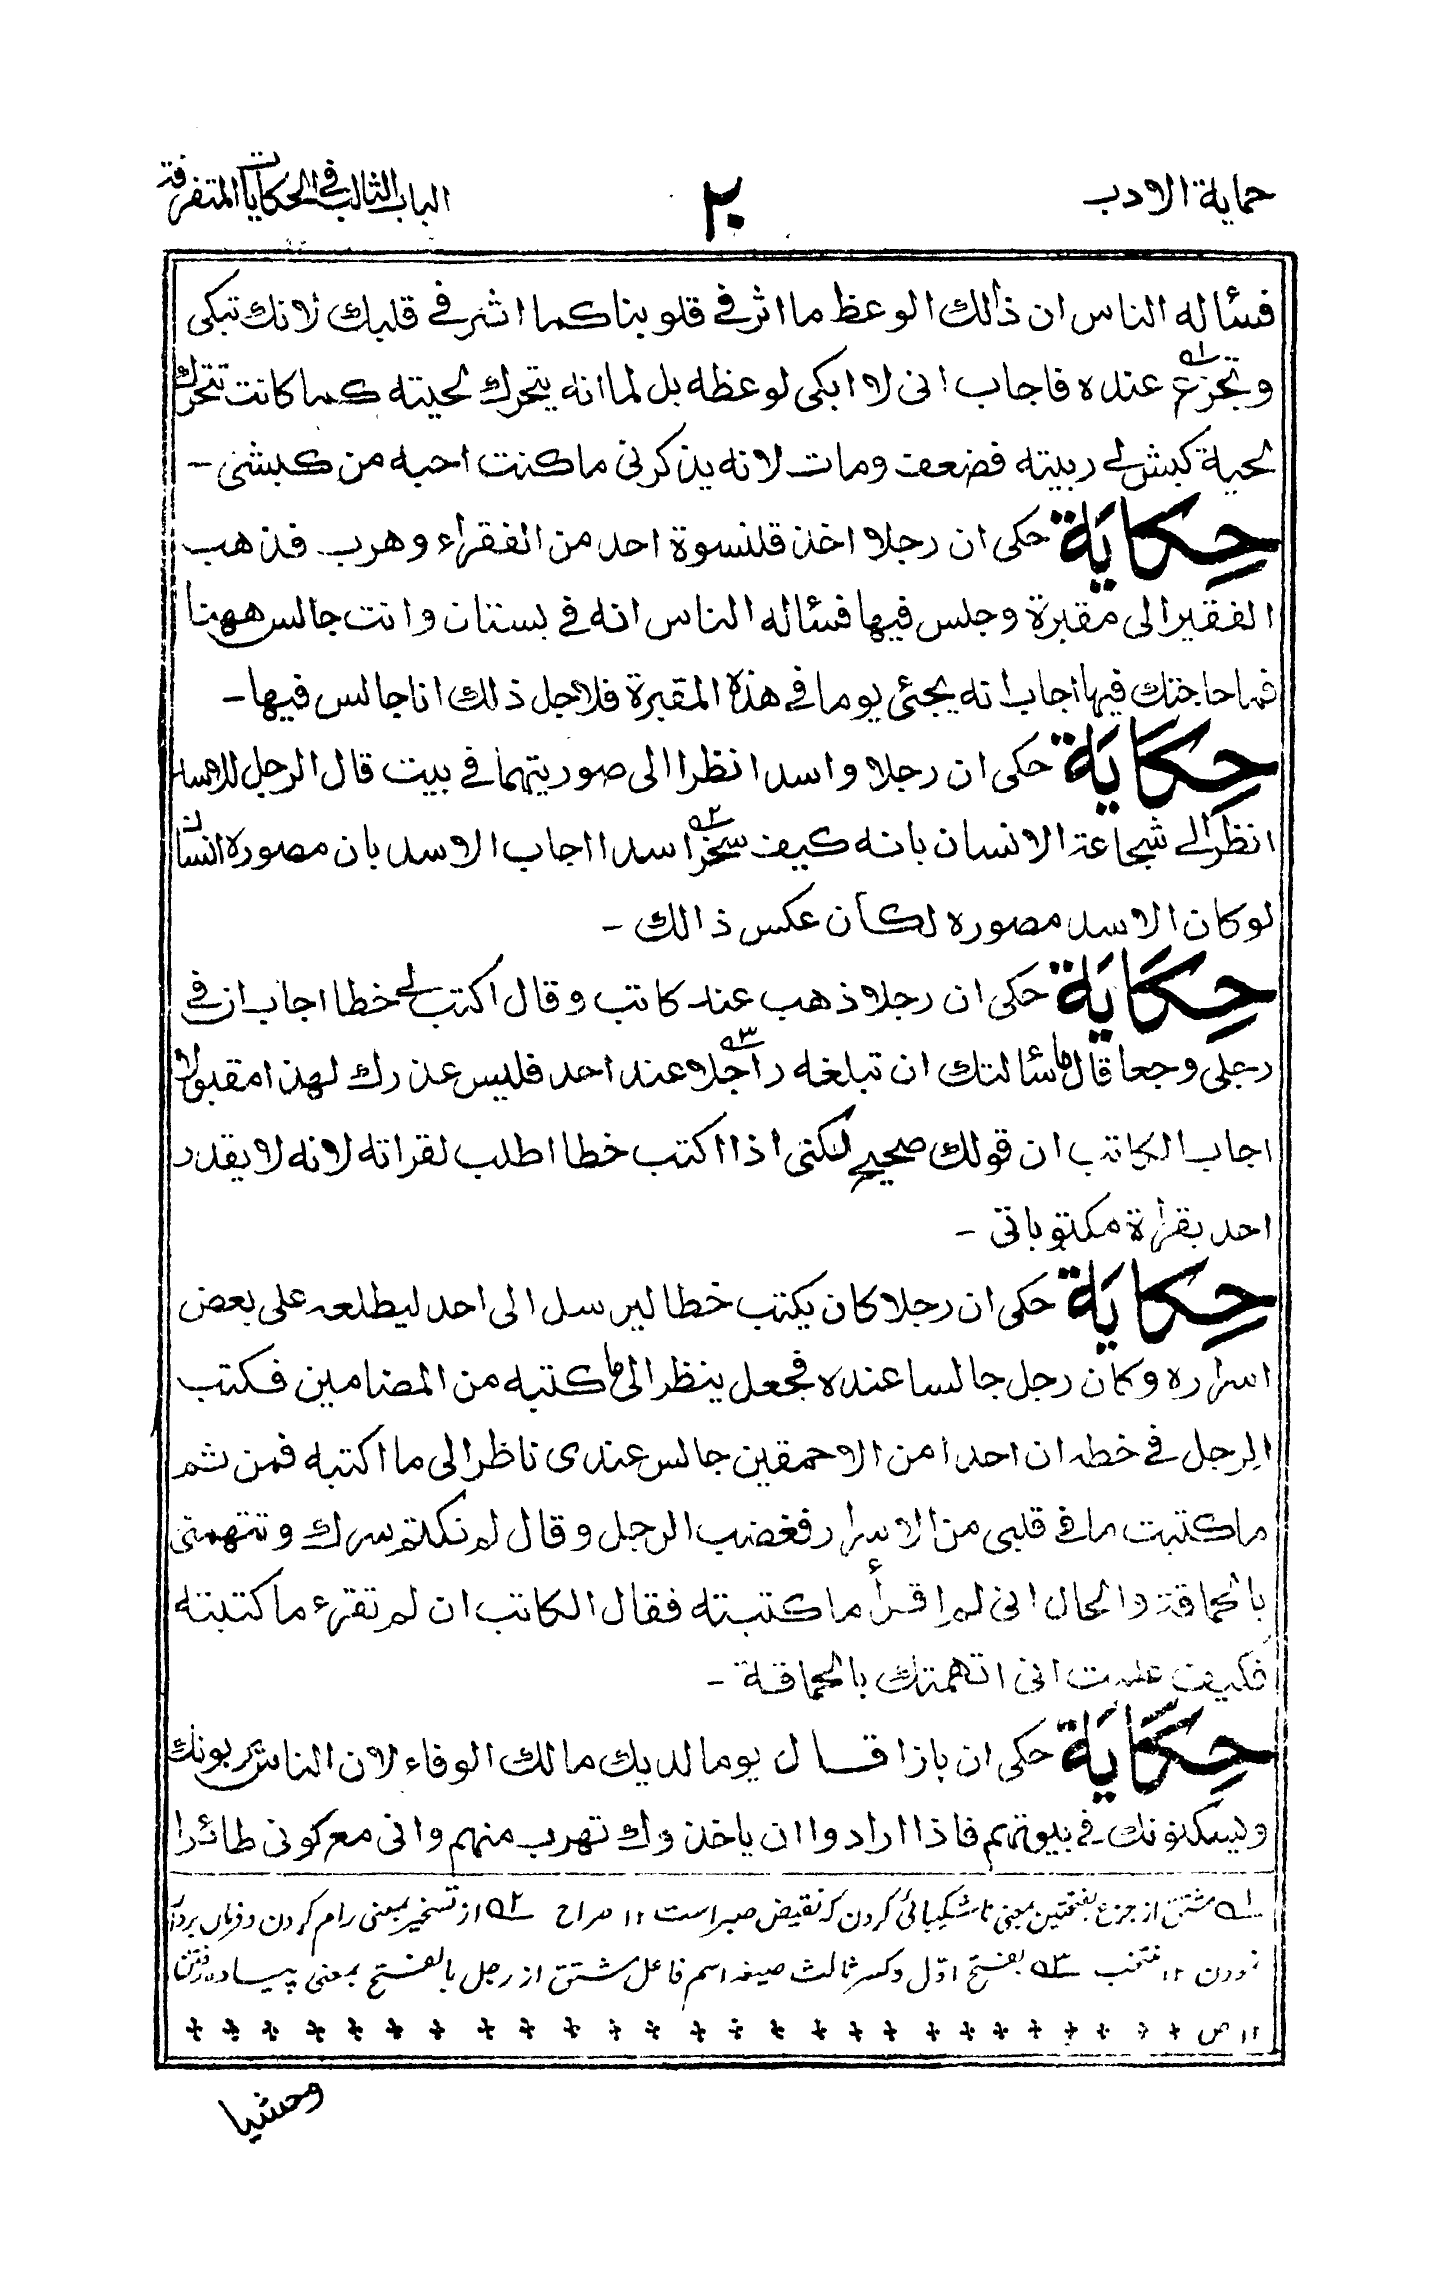 حماية الادب ٢٠ الباب الثالث في الحكايات المتفرقة
فسئاله الناس ان ذالك الوعظ ما اثر في قلوبنا كما اثر في قلبك لانك تبكى
وتجزع عنده فاجاب انى لا ابكى لوعظه بل لما انه يتحرك لحيته كما كانت تتحرك
لحية كبش لے ربيته فضعف ومات لانه يذكرنى ما كنت احبه من كبشى -
حِكَايَة حكى ان رجلا اخذ قلنسوة احد من الفقراء وهرب فذهب
الفقير الى مقبرة وجلس فيها فسئاله الناس انه في بستان وانت جالس ههنا
فما حاجتك فيها اجاب انه يجئى يوما في هذه المقبرة فلاجل ذلك انا جالس فيها -
حِكَايَة حكى ان رجلا واسدا نظرا الى صوريتهما في بيت قال الرجل للاسد
انظر الے شجاعة الانسان بانه كيف سخر اسدا اجاب الاسد بان مصوره انسان
لو كان الاسد مصوره لكان عكس ذالك -
حِكَايَة حكى ان رجلا ذهب عند كاتب وقال اكتب لے خطا اجاب ان في
رجلى وجعا قال ما سئالتك ان تبلغه راجلا عند احد فليس عذرك لهذا مقبولا
اجاب الكاتب ان قولك صحيح لكنى اذا اكتب خطا اطلب لقراته لانه لا يقدر
احد بقرأة مكتوباتى -
حِكَايَة حكى ان رجلا كان يكتب خطا ليرسل الى احد ليطلعه على بعض
اسراره وكان رجل جالسا عنده فجعل ينظر الى ما كتبه من المضامين فكتب
الرجل في خطه ان احدا من الاحمقين جالس عندى ناظر الى ما اكتبه فمن ثم
ما كتبت ما في قلبى من الاسرار فغضب الرجل وقال لم نكلتم سرك وتتهمنى
بالحماقة والحال انى لم اقرأ ما كتبته فقال الكاتب ان لم تقرء ما كتبته
فكيف علمت انى اتهمتك بالحماقة -
حِكَايَة حكى ان بازا قال يوما لديك مالك الوفاء لان الناس يربونك
ويسكنونك في بيوتهم فاذا ارادوا ان ياخذوك تهرب منهم وانى معركونى طائرا
١ه مشتق از جزع بفتحتين بمعنى ناشكيبائى كردن كه نقيض صبر است ١٢ صراح ٢ه از تسخير بمعنى رام كردن و فرمان بردار
نمودن ١٢ منتخب ٣ه بفتح اوّل وكسر ثالث صيغه اسم فاعل مشتق از رجل بالفتح بمعنى پياده رفتن
١٢ ص
وحشيا